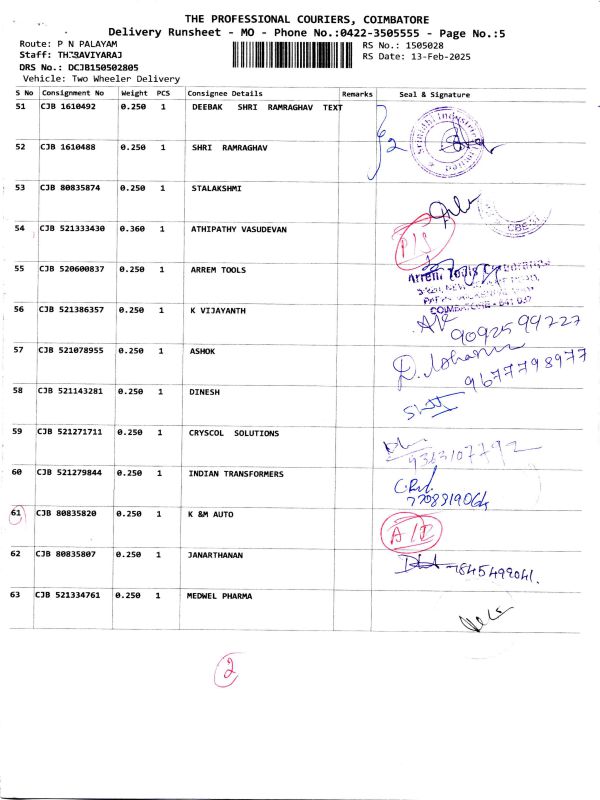 THE PROFESSIONAL COURIERS, COIMBATORE
Delivery Runsheet - MO - Phone No.:0422-3505555 - Page No.:5
Route: P N PALAYAM
RS No.: 1505028
Staff: THIRAVIYARAJ
RS Date: 13-Feb-2025
DRS No.: DCJB150502805
Vehicle: Two Wheeler Delivery
S No Consignment No Weight PCS Consignee Details Remarks Seal & Signature
51 CJB 1610492 0.250 1 DEEBAK SHRI RAMRAGHAV TEXT
2
52 CJB 1610488 0.250 1 SHRI RAMRAGHAV
53 CJB 80835874 0.250 1 STALAKSHMI
54 CJB 521333430 0.360 1 ATHIPATHY VASUDEVAN
55 CJB 520600837 0.250 1 ARREM TOOLS
Arrem Tools Corporation
COIMBATORE - 641 037
56 CJB 521386357 0.250 1 K VIJAYANTH
9092599227
57 CJB 521078955 0.250 1 ASHOK
9677798977
58 CJB 521143281 0.250 1 DINESH
59 CJB 521271711 0.250 1 CRYSCOL SOLUTIONS
9363107792
60 CJB 521279844 0.250 1 INDIAN TRANSFORMERS
7708319064
61 CJB 80835820 0.250 1 K &M AUTO
62 CJB 80835807 0.250 1 JANARTHANAN
63 CJB 521334761 0.250 1 MEDWEL PHARMA
2